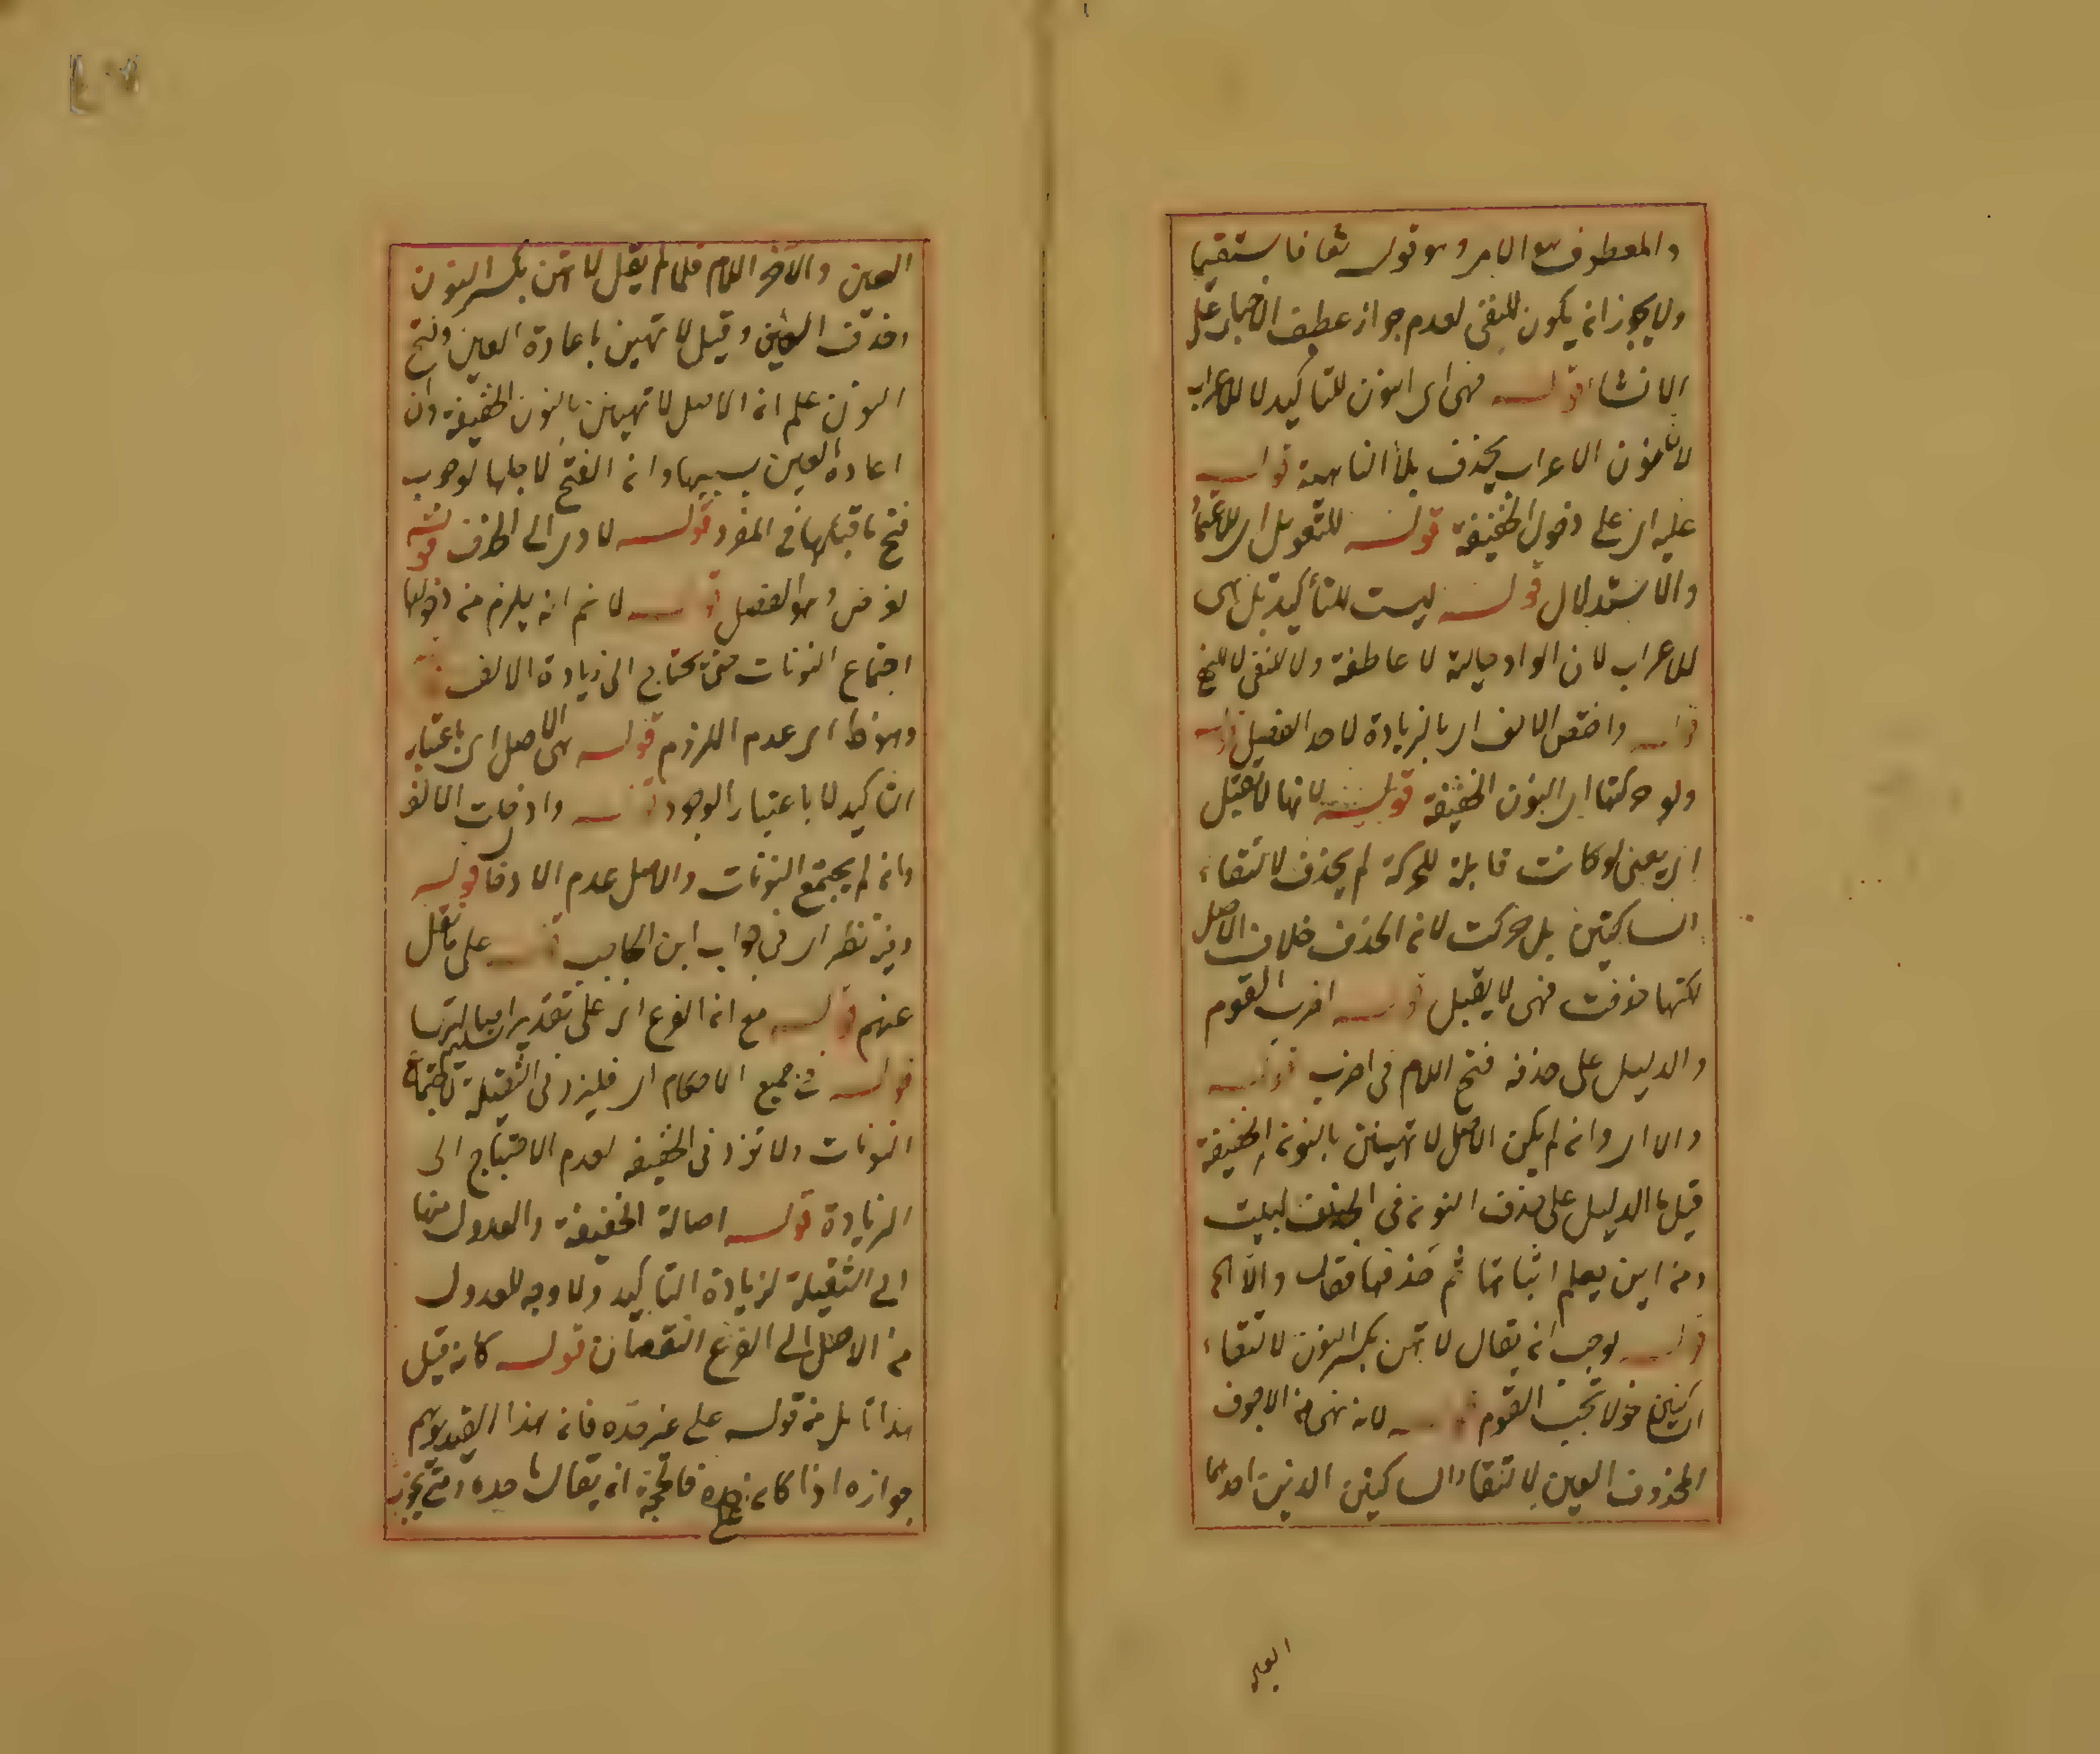 والمعطوف هو الامر وهو قوله تعا فاستقيما
ولا يجوز ان يكون للنفى لعدم جواز عطف الاخبار على
الانشاء قوله فهى اى النون للتاكيد لا للاعراب
لان نون الاعراب يحذف بلا الناهية قوله
عليه اى على دخول الخفيفة قوله للتعويل اى للاعتماد
والاستدلال قوله ليست للتأكيد بل هى
للاعراب لان الواو حالية لا عاطفة ولا للنفى لا للنهى
قوله واختص الالف اى بالزيادة لاحد الفصيل قوله
ولو حركتها اى النون الخفيفة قوله لانها لا تقبل
اى يعنى لو كانت قابلة للحركة لم يحذف لالتقاء
الساكنين بل حركت لان الحذف خلاف الاصل
لكنها حذفت فهى لا يقبل قوله اضرب القوم
والدليل على حذفه فتح اللام فى اضرب قوله
والا اى وان لم يكن الاصل لا تهينن بالنون الخفيفة
قيل ما الدليل على حذف النون فى البيت
ومن اين يعلم اثباتها ثم حذفها فقال والا الخ
قوله لوجب ان يقال لا تهن بكسر النون لالتقاء
الساكنين نحو لا تجب القوم قوله لانه نهى من الاجوف
المحذوف العين لالتقاء الساكنين الذين احدهما
العين
العين والاخر اللام فلما لم يقل لا تهن بكسر النون
وحذف العين وقيل لا تهين باعادة العين وفتح
النون علم ان الاصل لا تهينن بالنون الخفيفة وان
اعادة العين بسببها وان الفتح لاجلها لوجوب
فتح ما قبلها فى المفرد قوله لادى الى الحذف قوله
لغرض وهو الفصل قوله لا نم انه يلزم من دخولها
اجتماع النونات حتى يحتاج الى زيادة الالف
وهو ظ اى عدم اللزوم قوله هى الاصل اى باعتبار
التاكيد لا باعتبار الوجود قوله وادخلت الالف
وان لم يجتمع النونات والاصل عدم الادخا قوله
وفيه نظر اى فى جواب ابن الحاجب قوله على ما نقل
عنهم قوله مع ان الفرع اى على تقدير تسليم اصالتها
قوله فى جميع الاحكام اى فليزد فى الثقيلة لاجتماع
النونات ولا تزد فى الخفيفة لعدم الاحتياج الى
الزيادة قوله اصالة الخفيفة والعدول منها
الى الثقيلة لزيادة التاكيد ولا وجه للعدول
من الاصل الى الفرع النقصان قوله كانه قيل
هذا تامل من قوله على غير حده فان هذا القيد يوهم
جوازه اذا كان على حده فاتجه ان يقال ما حده ومتى يجوز